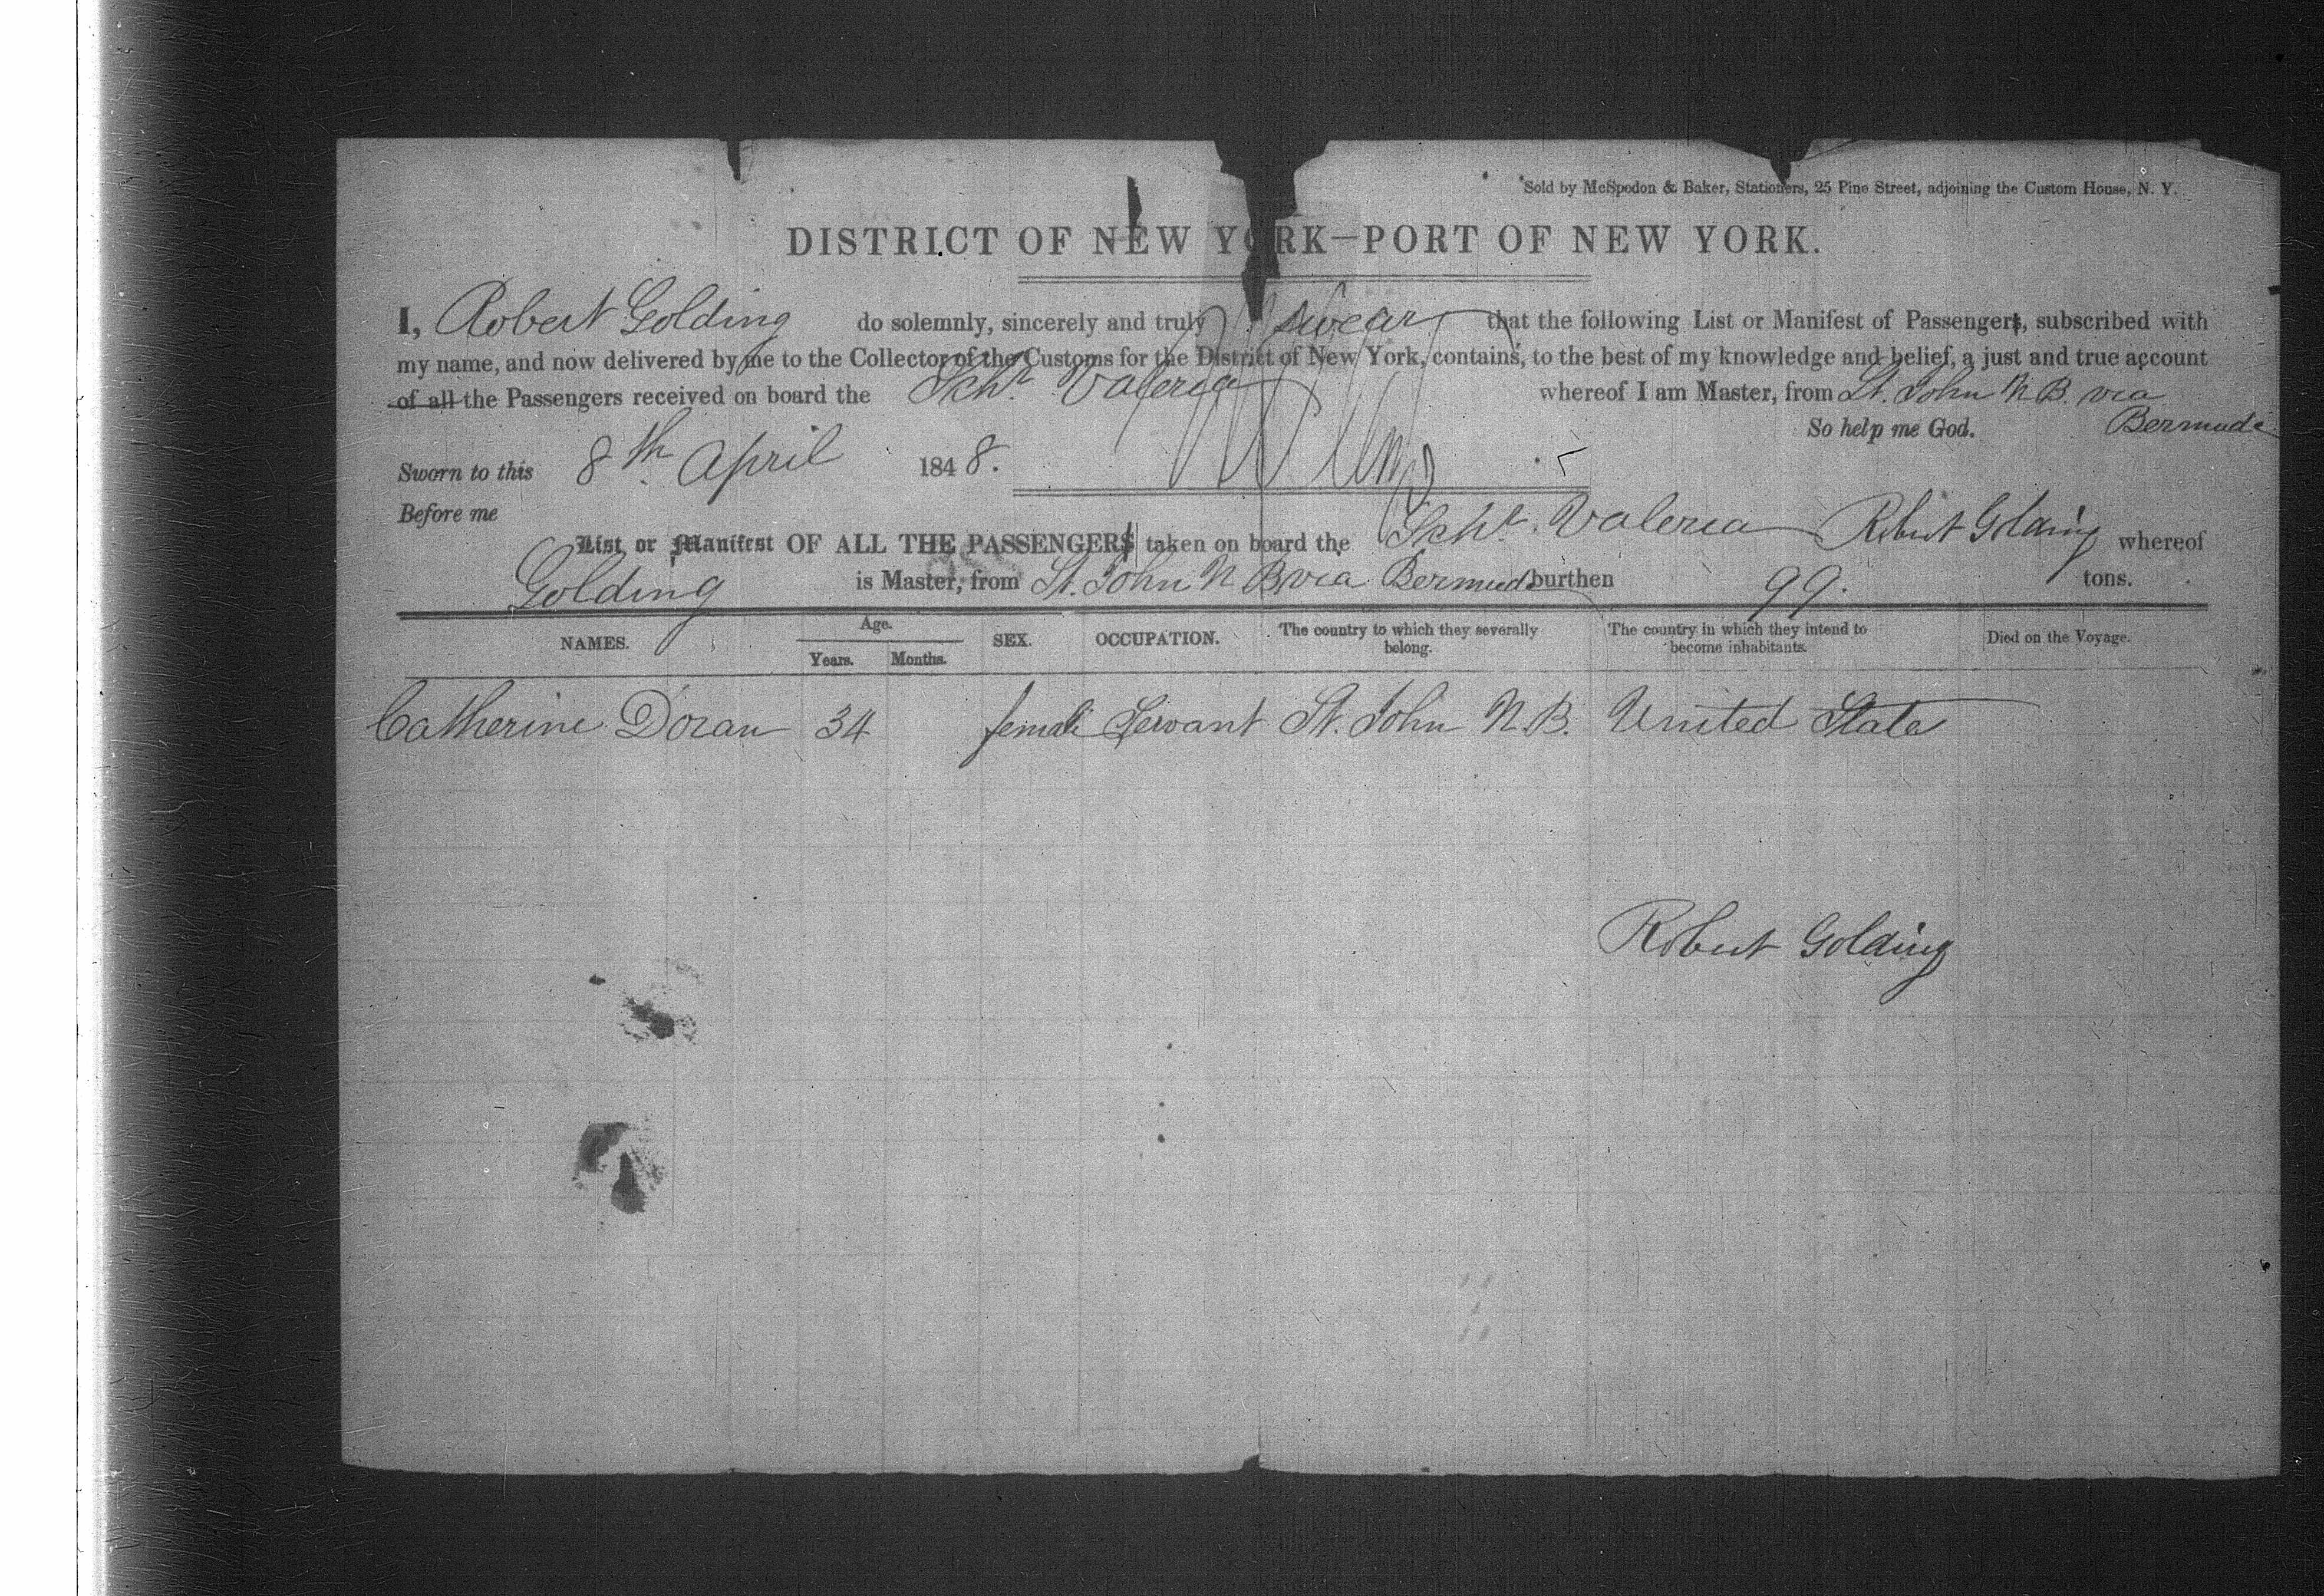 Sold by McSpedon & Baker, Stationers, 25 Pine Street, adjoining the Custom House, N. Y.
DISTRICT OF NEW YORK—PORT OF NEW YORK.
I, Robert Golding do solemnly, sincerely and truly swear that the following List or Manifest of Passengers, subscribed with
my name, and now delivered by me to the Collector of the Customs for the District of New York, contains, to the best of my knowledge and belief, a just and true account
of all the Passengers received on board the Schr. Valeria whereof I am Master, from St. John N B. via
So help me God. Bermuda
Sworn to this 8th April 1848.
Before me
List or Manifest OF ALL THE PASSENGERS taken on board the Schr. Valeria Robert Golding whereof
Golding is Master, from St. John N B via Bermuda burthen 99. tons.
NAMES. Age. Years. Months. SEX. OCCUPATION. The country to which they severally belong. The country in which they intend to become inhabitants. Died on the Voyage.
Catherine Doran 34 female Servant St. John N. B. United State
Robert Golding